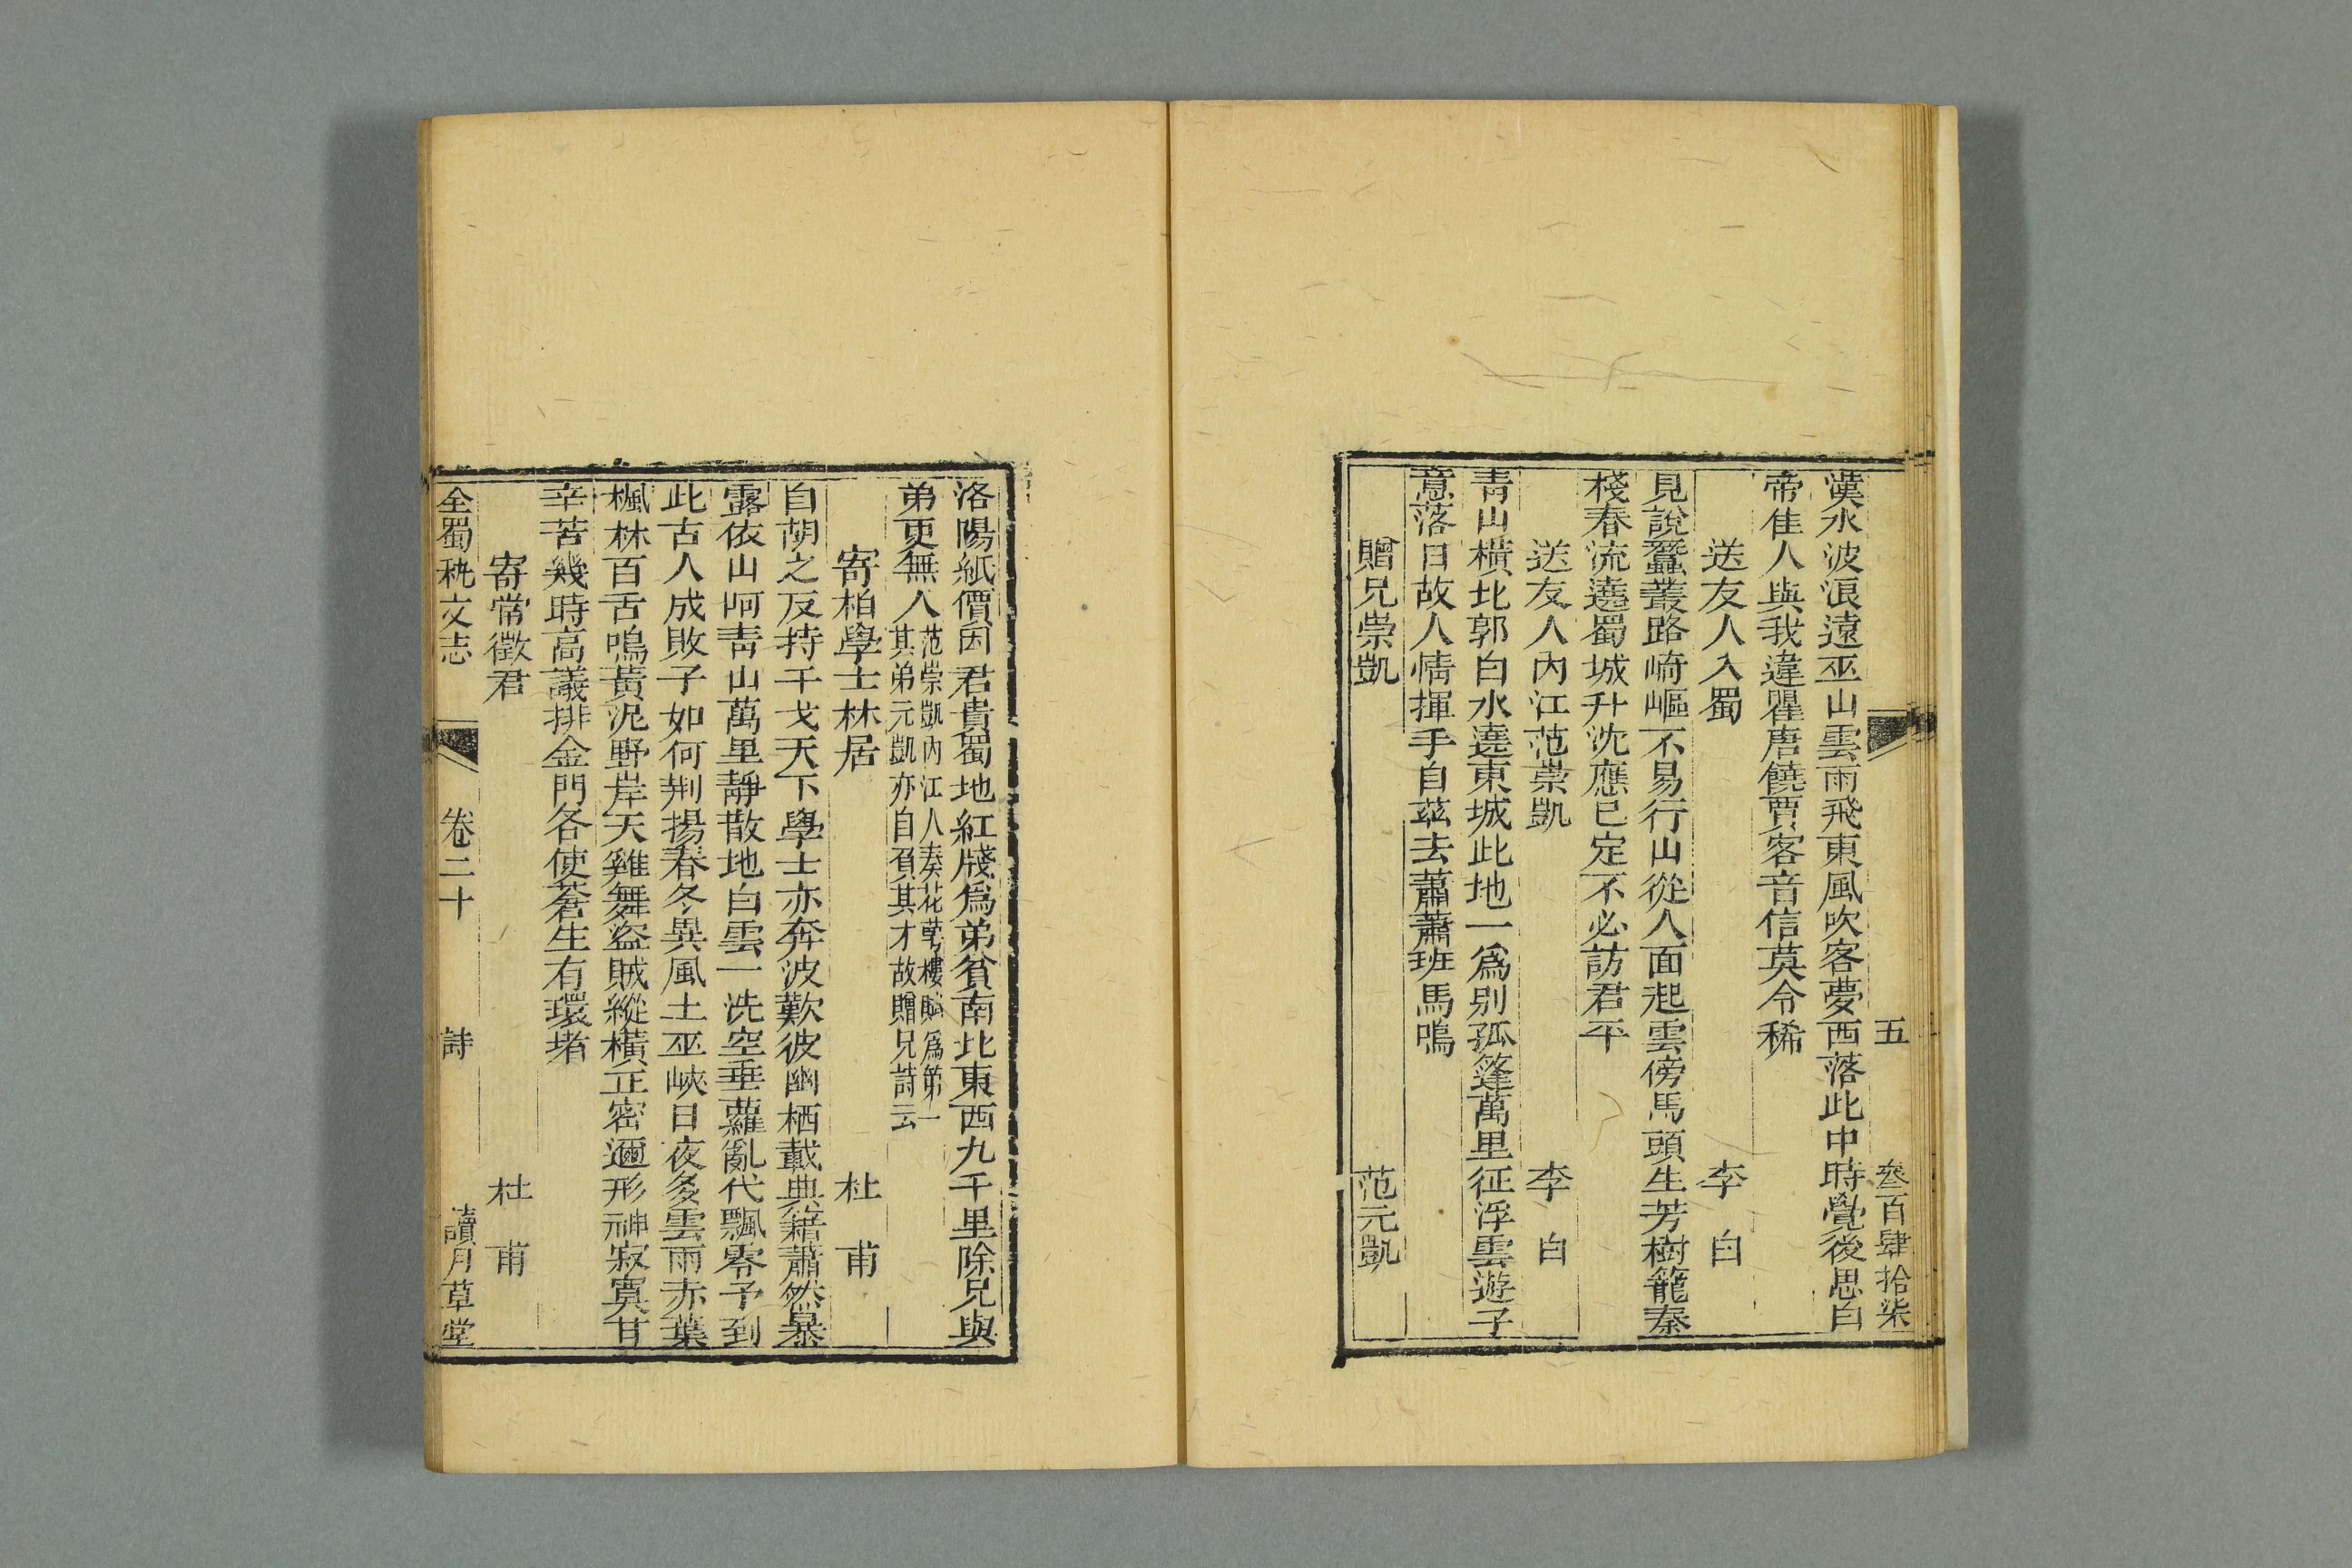 五 叄百肆拾柒
漢水波浪遠巫山雲雨飛東風吹客夢西落此中時覺後思白
帝佳人與我違瞿唐饒賈客音信莫令稀
送友人入蜀 李白
見說蠶叢路崎嶇不易行山從人面起雲傍馬頭生芳樹籠秦
棧春流遶蜀城升沈應已定不必訪君平
送友人內江范崇凱 李白
青山橫北郭白水遶東城此地一爲別孤篷萬里征浮雲遊子
意落日故人情揮手自茲去蕭蕭班馬鳴
贈兄崇凱 范元凱
洛陽紙價因君貴蜀地紅牋爲弟貧南北東西九千里除兄與
弟更無人
范崇凱內江人奏花萼樓賦爲第一
其弟元凱亦自負其才故贈兄詩云
寄柏學士林居 杜甫
自胡之反持干戈天下學士亦奔波歎彼幽栖載典籍蕭然暴
露依山阿青山萬里靜散地白雲一洗空垂蘿亂代飄零予到
此古人成敗子如何荆揚春冬異風土巫峽日夜多雲雨赤葉
楓林百舌鳴黃泥野岸天雞舞盜賊縱橫正密邇形神寂寞甘
辛苦幾時高議排金門各使蒼生有環堵
寄常徵君 杜甫
全蜀秇文志 卷二十 詩 讀月草堂